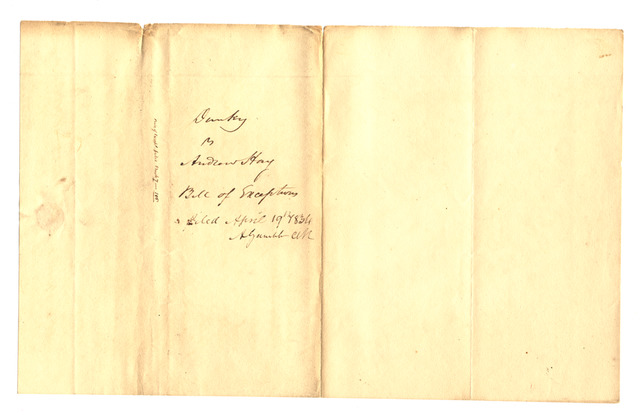 Dunky
vs
Andrew Hay
Bill of Exceptions
Filed April 19th 1834
A Gamble Clk